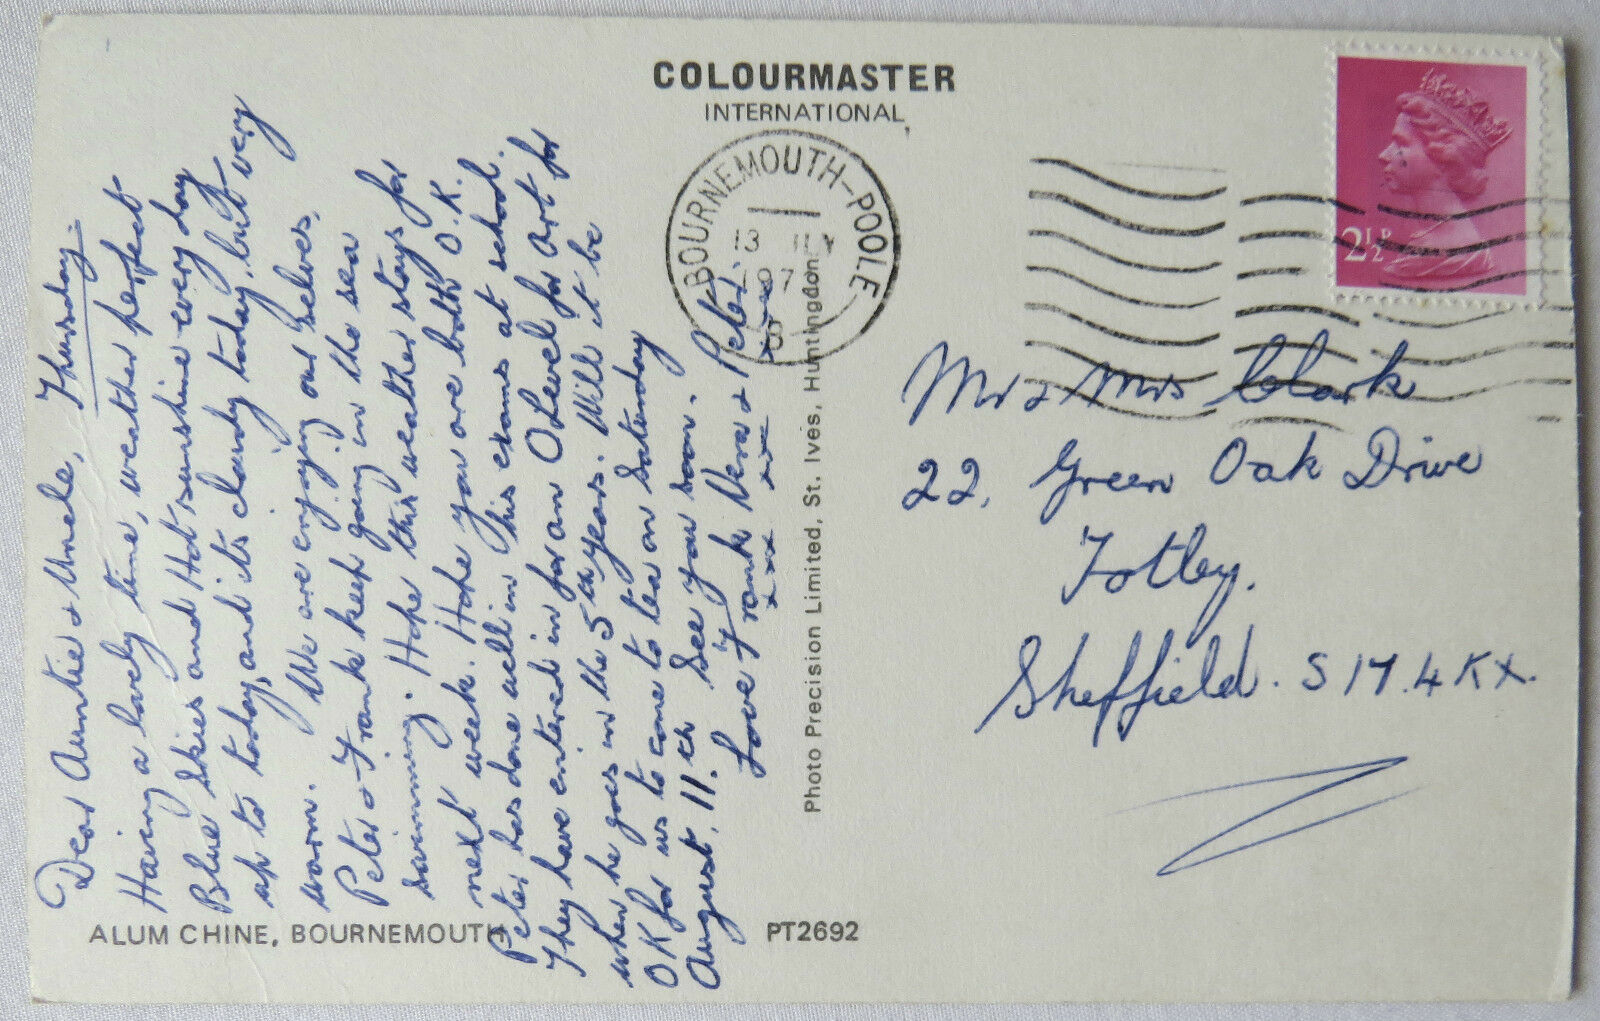 COLOURMASTER
INTERNATIONAL
BOURNEMOUTH-POOLE
13 JLY
197
2½P
Dear Auntie & Uncle, Thursday.
Having a lovely time, weather perfect
Blue skies and Hot sunshine every day
up to today, and its cloudy today, but very
warm. We are enjoying our selves.
Peter & Frank keep going in the sea
swimming. Hope this weather stays for
next week. Hope you are both O.K.
Peter has done well in this exams at school.
They have entered in for an O Level for art for
when he goes in the 5th years. Will it be
OK for us to come to tea on Saturday
August. 11.th See you soon.
Love Frank Vera & Peter
xxxx xx xx xxx
Photo Precision Limited, St. Ives, Huntingdon
Mr & Mrs Clark
22, Green Oak Drive
Totley.
Sheffield. S17.4KX.
ALUM CHINE, BOURNEMOUTH
PT2692